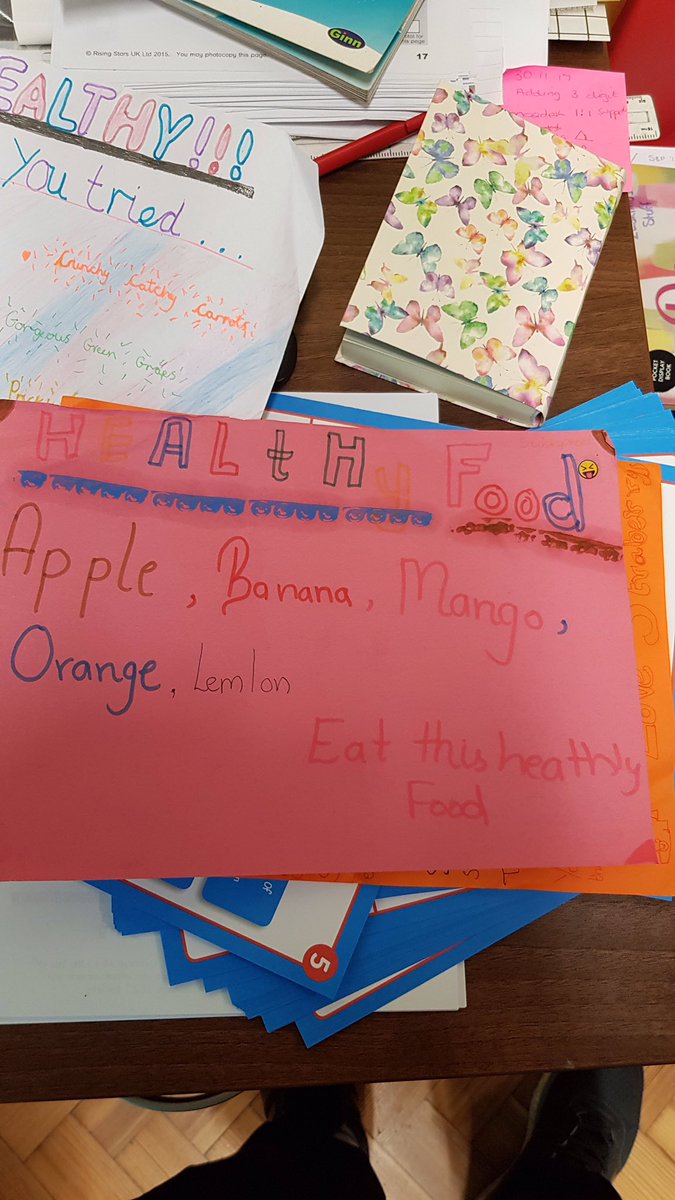 Ginn
© Rising Stars UK Ltd 2015. You may photocopy this page.
17
30.11.17
Adding 3 digit
EALTHY!!!
you tried...
Crunchy Catchy Carrots
Gorgeous Green Grapes
POCKET
DISPLAY
BOOK
HEALtHy Food
Apple, Banana, Mango,
Orange, Lemlon
Eat this heathly
Food
5